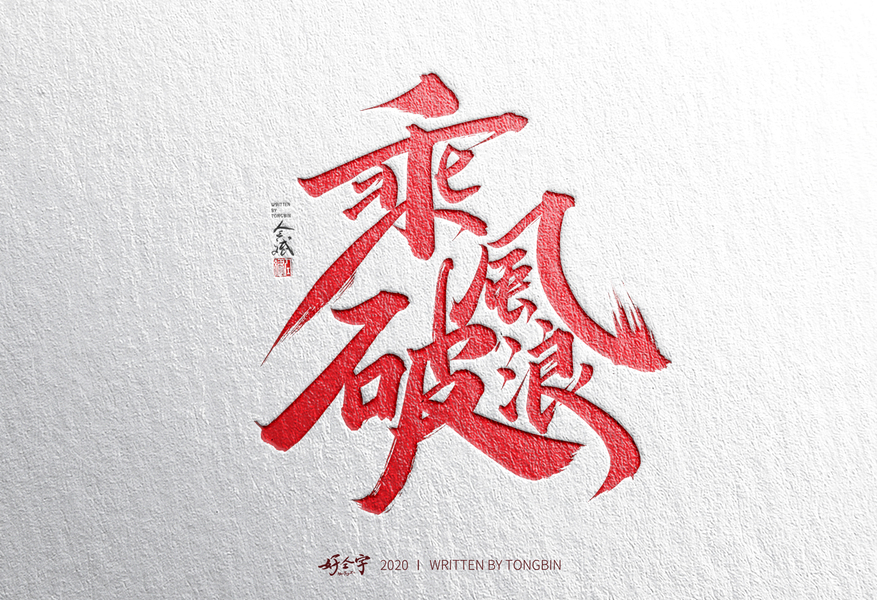 乘風
破浪
WRITTEN
BY
TONGBIN
2020 | WRITTEN BY TONGBIN